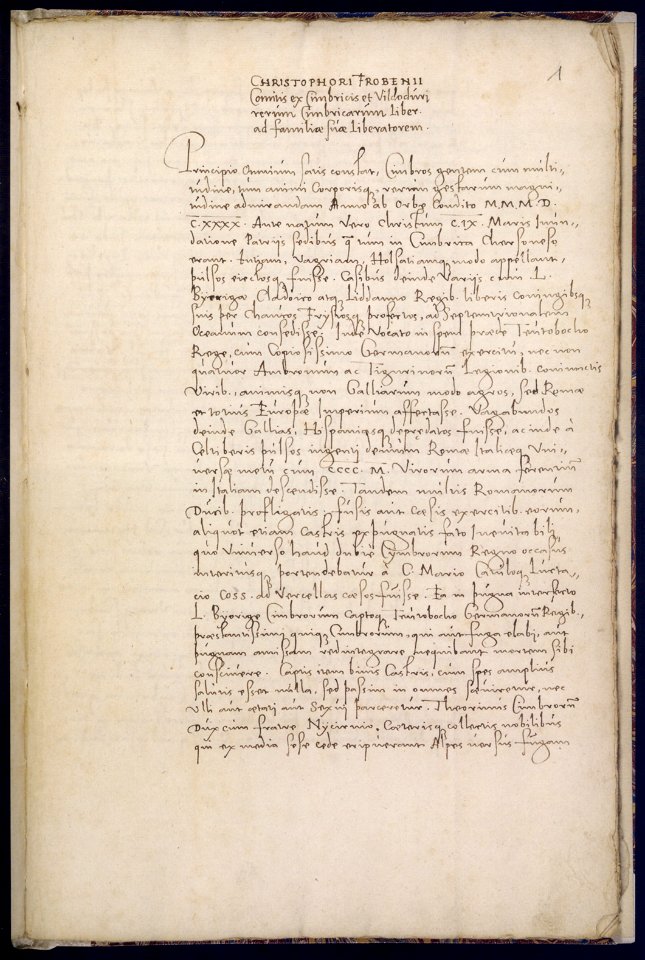 1
CHRISTOPHORI FROBENII
Comitis ex Cimbricis et Vildoduri
rerum Cimbricarum Liber.
ad familiæ suæ Liberatorem.
Principio Omnium satis constat, Cimbros gentem cum multi-
tudine, tum animi Corporisq; rerum gestarum magni-
tudine admirandam Anno ab Orbe Condito M.M.M.D.
C.XXXX. Ante natum Vero Christum C.IX. Maris Inun-
datione Patrijs sedibus q̄ tum in Cimbrica Chersoneso
erant. Iutiam, Vagriam, Holsatiamq; modo appellant,
pulsos eiectosq; fuisse. Casibus deinde Varijs cum L.
Byorige Claodico atq; Liddanno Regib. liberis coniugibsq;
suis per Chaucos Frysiosq; profectos, ad Septemtrionalem
Oceanum consedisse. Inde Vocato in spem prædæ Teutobocho
Rege, cum Copiosissimo Germanorū exercitu, nec non
quatuor Ambronum ac Tigurinorū Legionib. coniunctis
Virib., animisq; non Galliarum modo agros, sed Romæ
et totius Europæ Imperium affectasse. Vagabundos
deinde Gallias, Hispaniasq; deprędatos fuisse, ac inde à
Celtiberis pulsos ingenti demum Romæ Italiæq; Vni-
versæ metu cum CCCC. M. Virorum arma ferentiū
in Italiam descendisse. Tandem multis Romanorum
Ducib. profligatis fusis aut cæsis exercitib. eorum,
aliquot etiam castris expugnatis fato Ineuitabili,
quo Vniuerso haud dubiè Cimbrorum Regno occasus
interitusq; portendebatur à C. Mario Catuloq; Lucta-
cio COSS. ad Vercellas cæsos fuisse. Ea in pugna interfecto
L. Byorige Cimbrorum captoq; Teutobocho Germanorū Regib.
præstantissimi quiq; Cimbrorum, qui aut fuga elabi, aut
pugnam amissam redintegrare nequibant mortem sibi
consciuere. Captis item binis Castris, cum spes amplius
salutis esset nulla, sed passim in omnes sæuiretur, nec
Vlli aut ætati aut Sexui parceretur. Theorimus Cimbrorū
Dux cum fratre Nycirnio, Cæterisq; collectis nobilibus
qui ex media sese cede eripuerant Alpes versus fugam